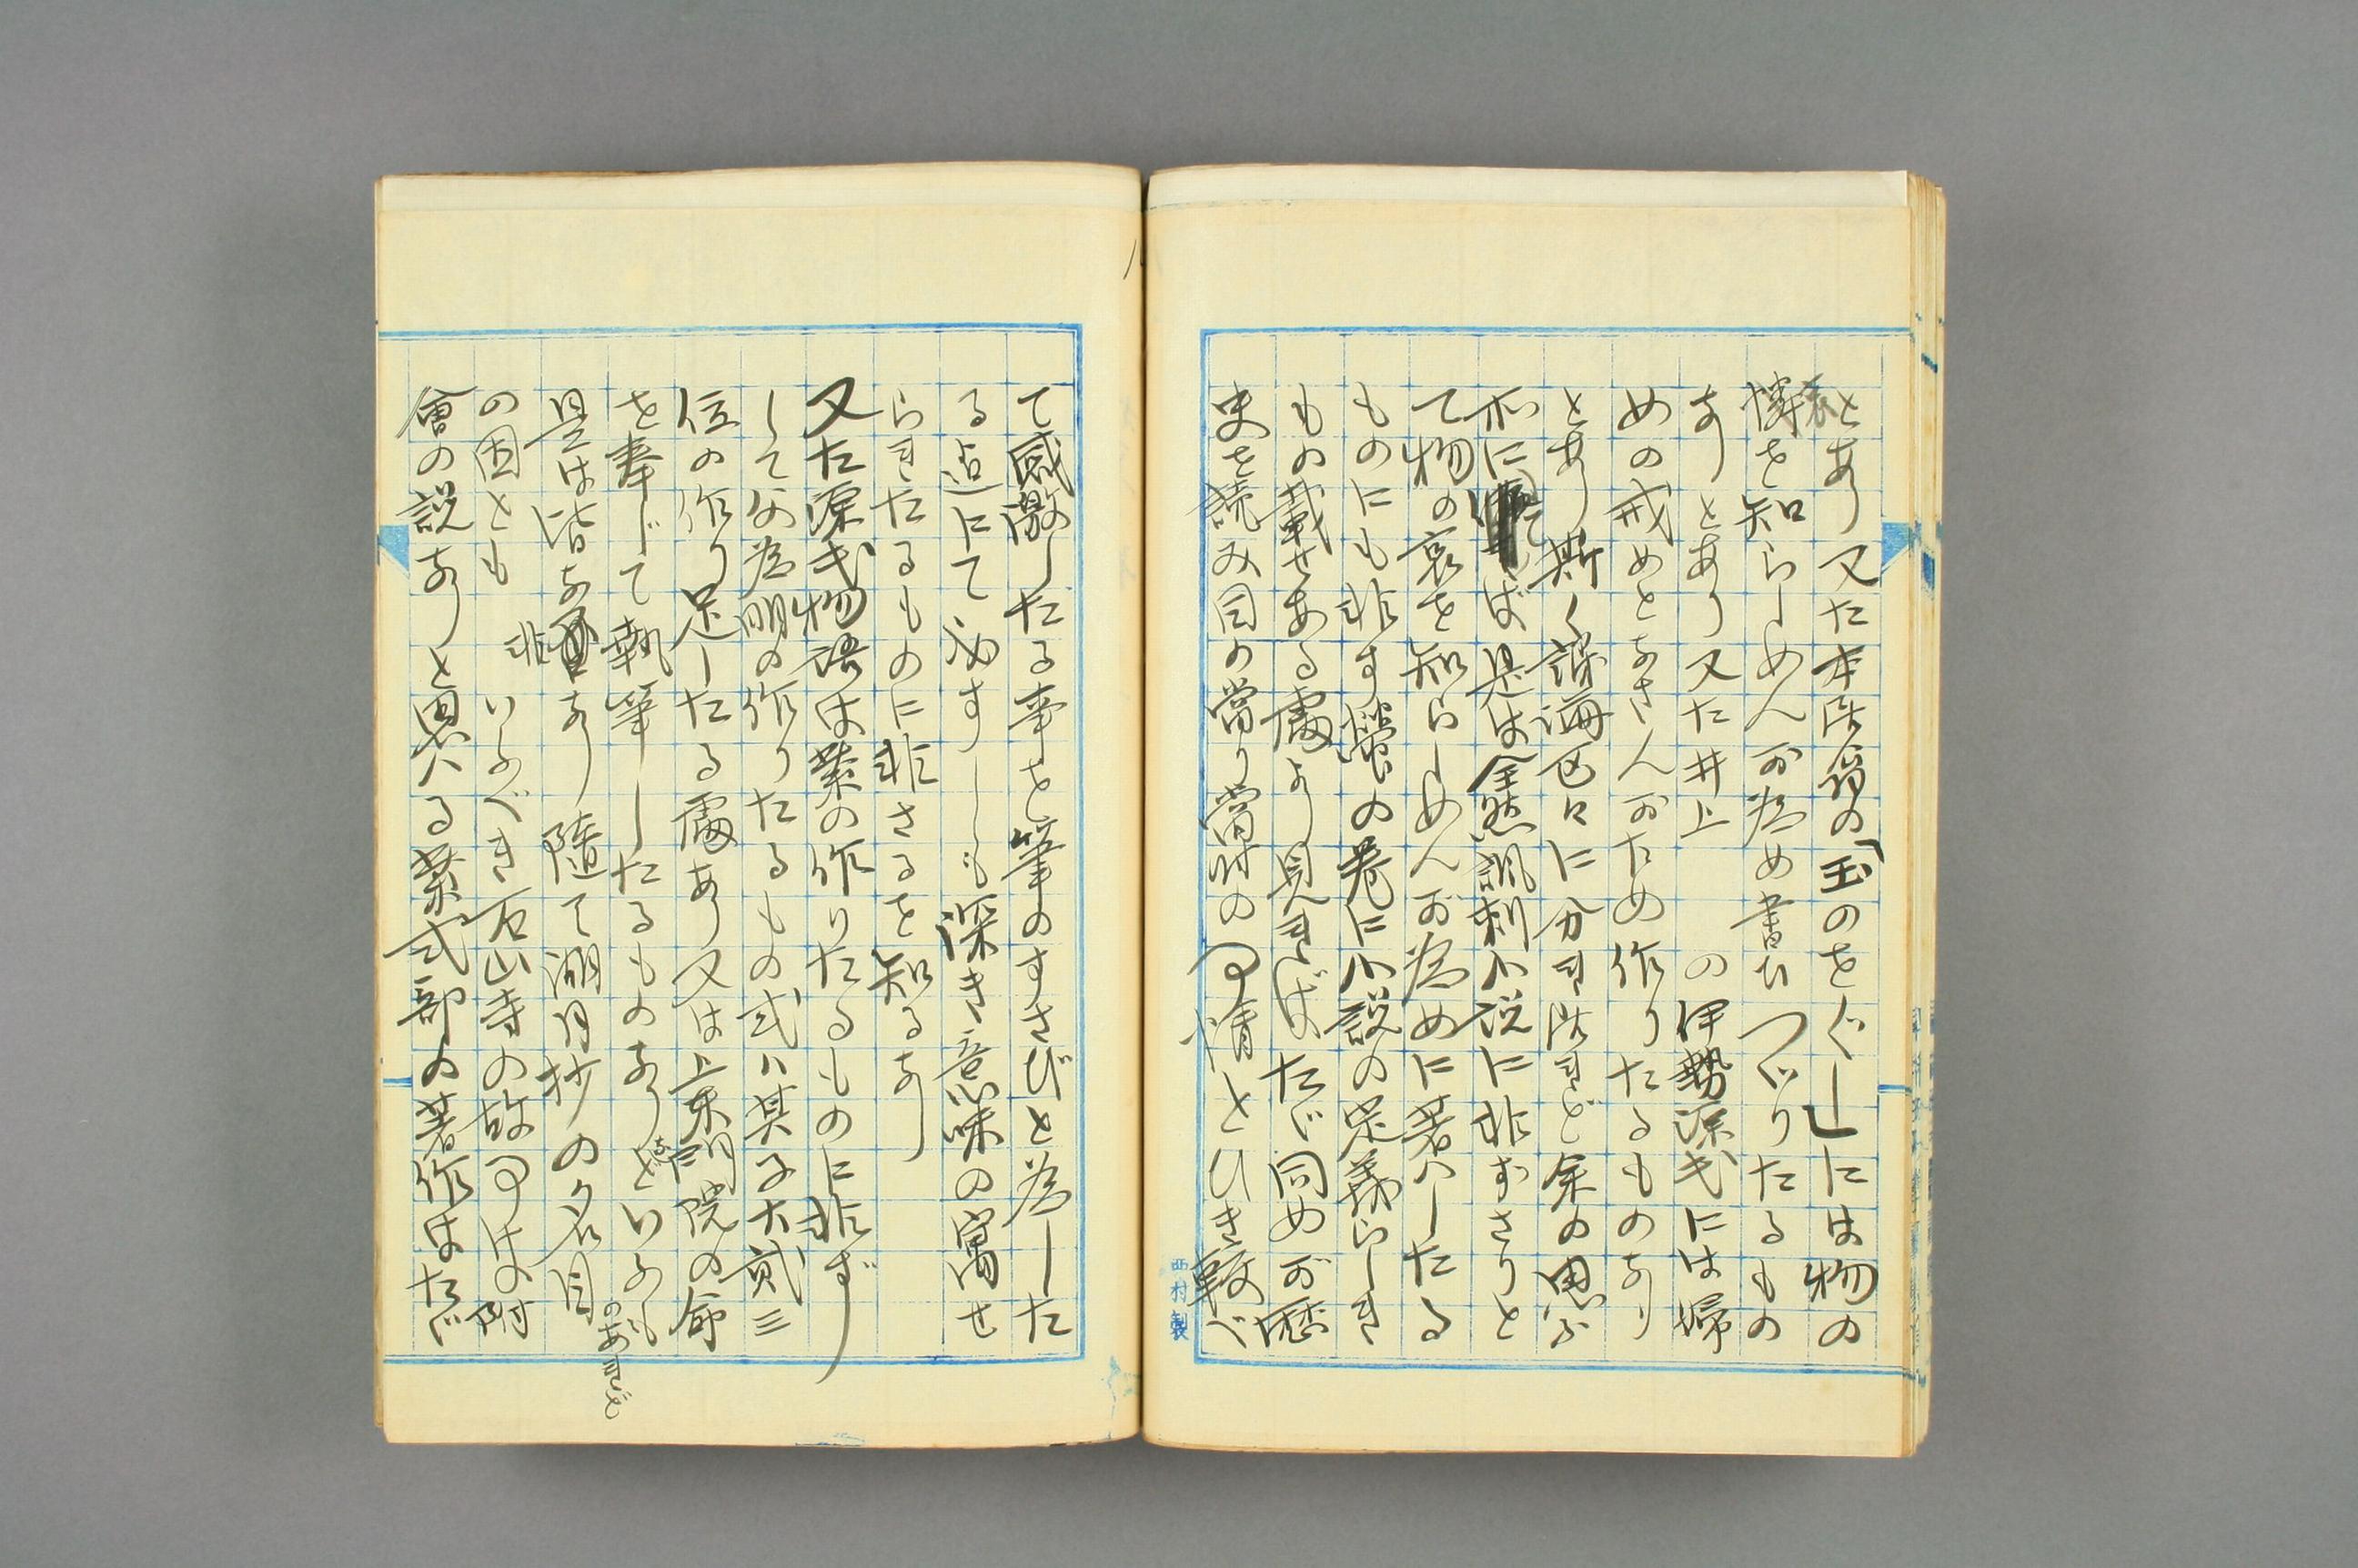 とあり又た本居翁の「玉のをぐし」には物の
哀憐を知らしめんが為め書ひつゞりたるもの
ありとあり又た井上 の伊勢源氏には婦
めの戒めとなさんがため作りたるものなり
とあり斯く諸論区々に分れ居れど余の思ふ
亦に ば是は全然諷刺小説に非ずさりと
て物の哀を知らしめんが為めに著はしたる
ものにも非す蛍の巻に小説の定義らしき
もの載せある處より見ればたゞ同めが歴
史を読み目の當り當時の事情とひき較べ
て感激したる事を筆のすさびと為した
る迄にて必すしも深き意味の寓せ
られたるものに非さるを知るなり
又た源氏物語は紫の作りたるものに非ず
して父為時の作りたるもの或ハ其子大貳三
位の作り足したる處あり又は上東門院の命
を奉じて執筆したるものなりなどいふもの
のあれど
是は皆な非なり随て湖月抄の名目
の因とも いふべき石山寺の故事は附
會の説なりと思へる紫式部の著作はたゞ
西村製